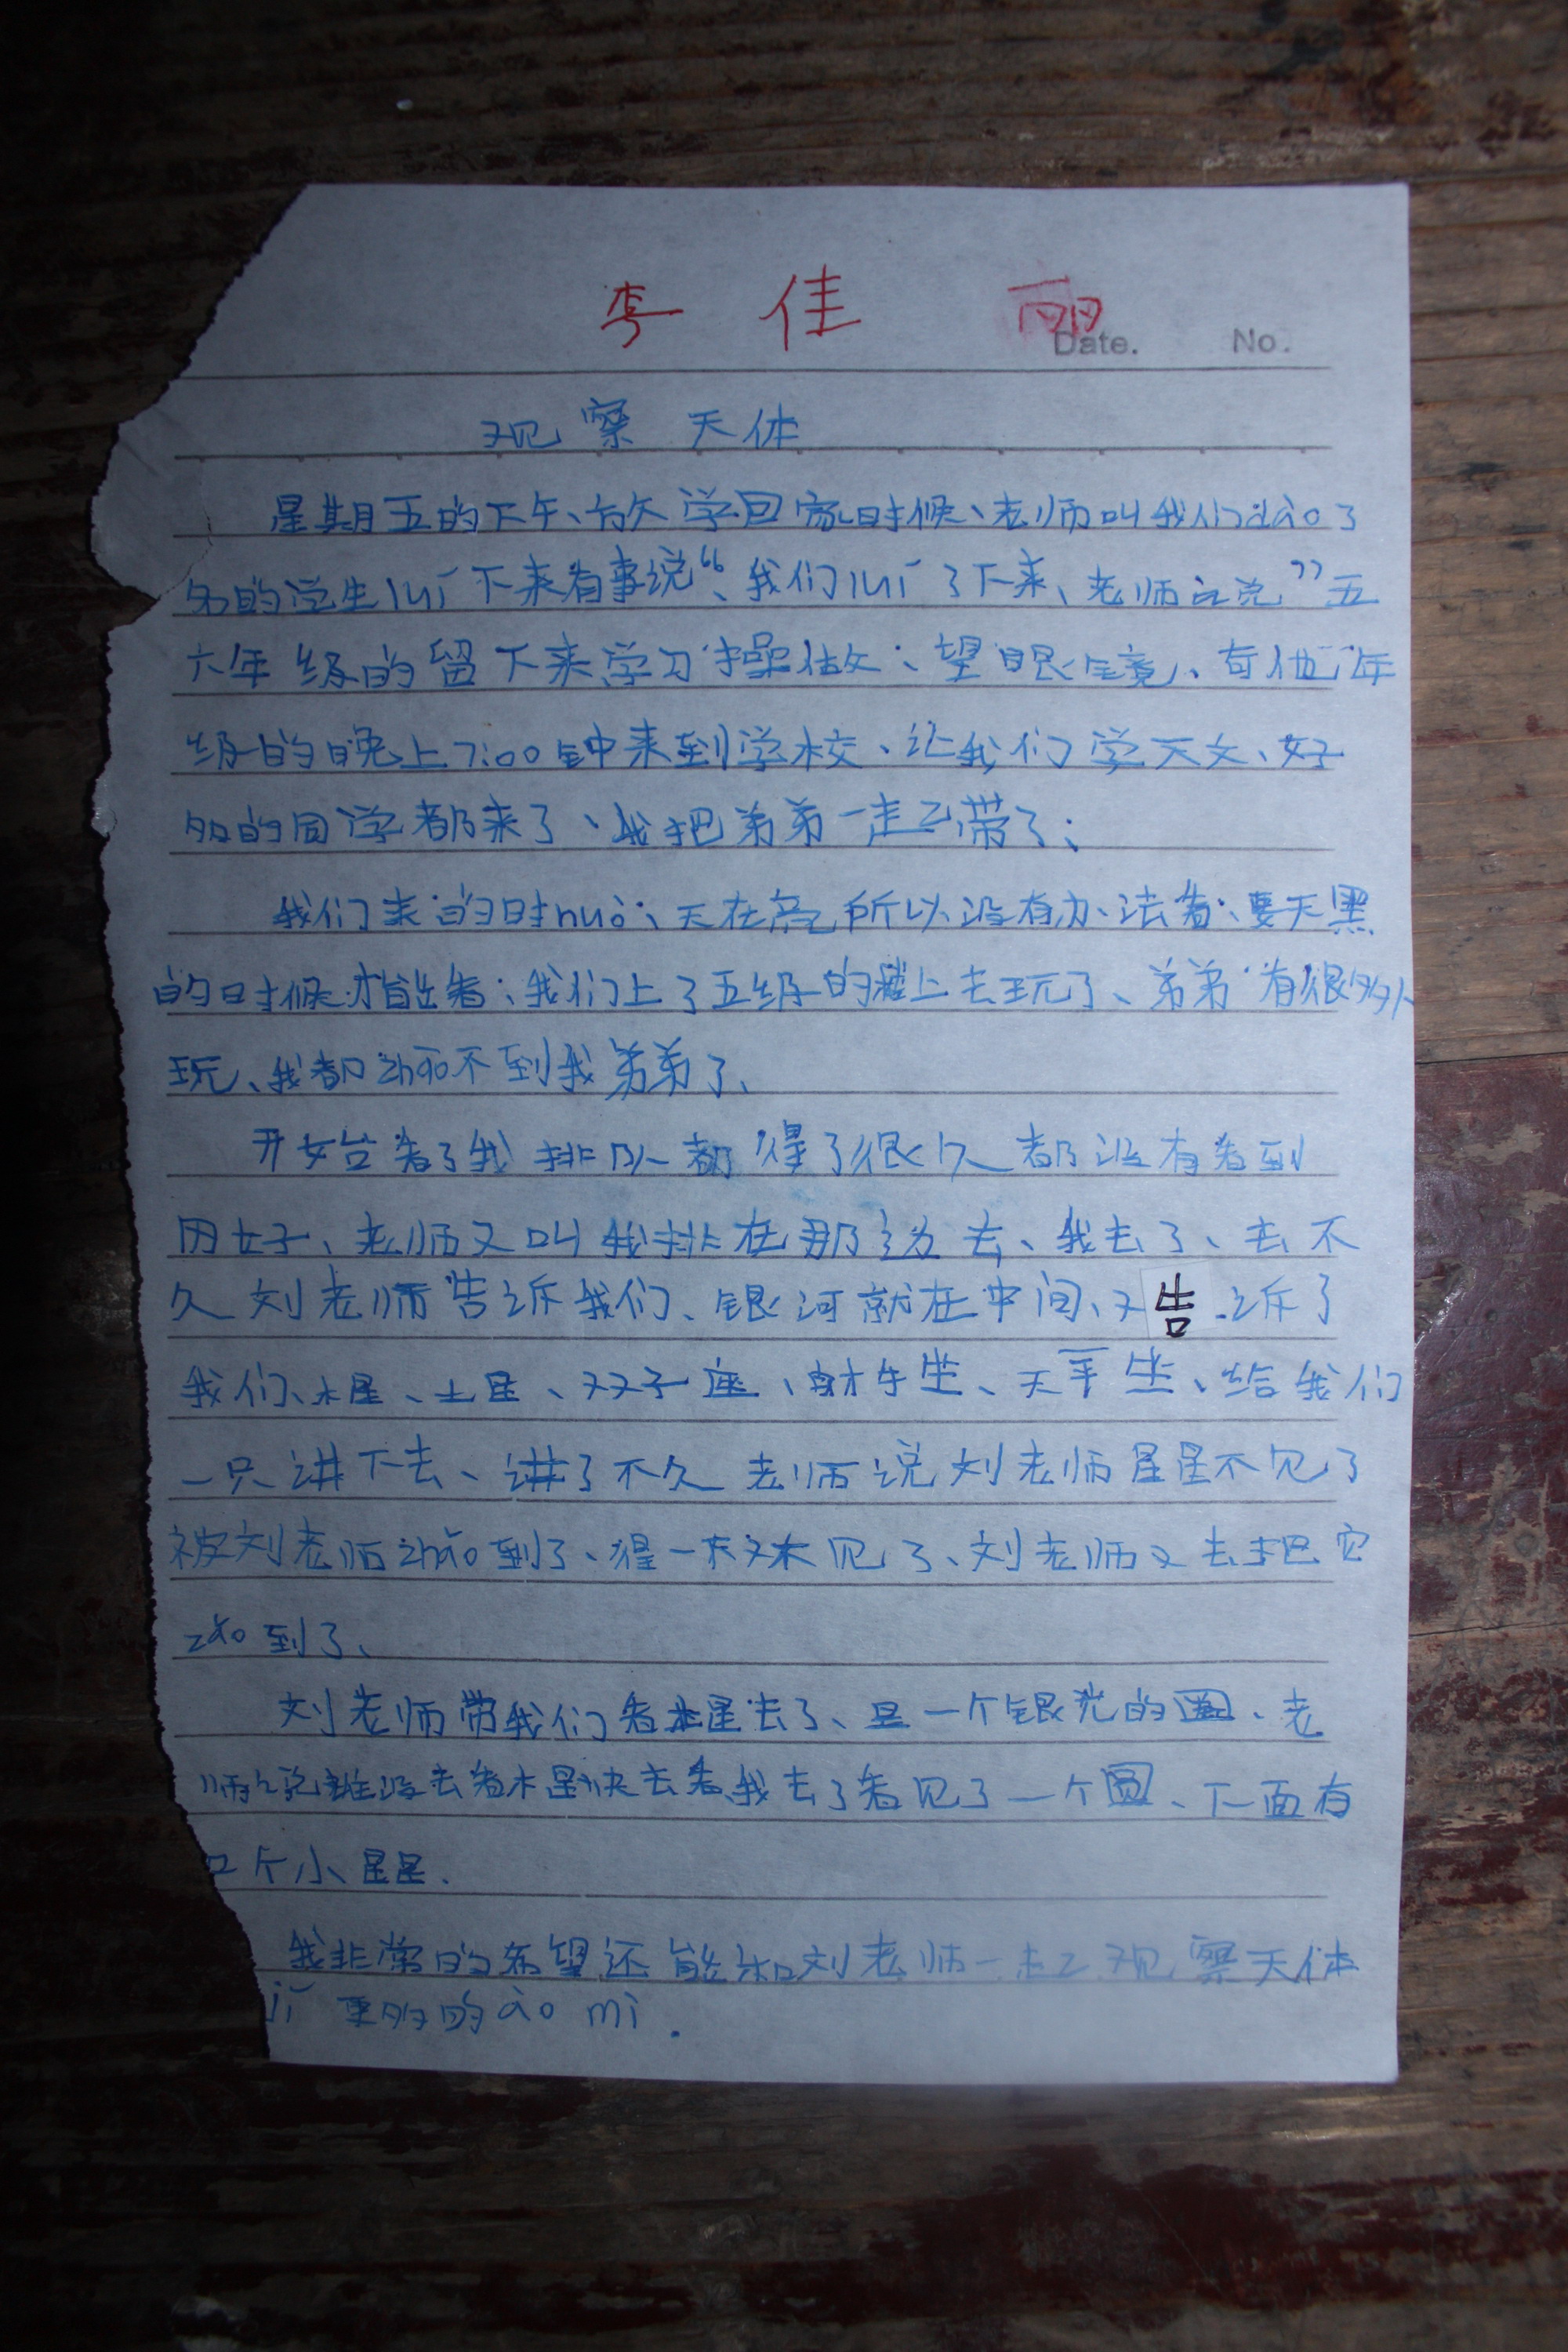 李佳丽
Date. No.
观察天体
星期五的下午、放学回家时候、老师叫我们
多的学生liuí下来有事说“、我们liuí了下来、老师说”五
六年级的留下来学习操做、望眼镜、有他年
级的晚上7:00钟来到学校、让我们学天文、好
多的同学都来了、我把弟弟一起带了、
我们来的时huò、天在亮所以没有办法看、要天黑
的时候才能看、我们上了五级的楼上去玩了、弟弟有很多人
玩、我都zhǎo不到我弟弟了、
开始看了我排队都得了很久都没有看到
因好、老师又叫我排在那边去、我去了、去不
久刘老师告诉我们、银河就在中间、又告诉了
我们、木星、土星、双子座、射牛坐、天平坐、给我们
一只讲下去、讲了不久老师说刘老师星星不见了
被刘老师zhǎo到了、猩一次又不见了、刘老师又去把它
zǎo到了、
刘老师带我们看木星去了、是一个银光的圆、老
师说谁没去看木星快去看、我去了看见了一个圆、下面有
个小星星.
我非常的希望还能和刘老师一起观察天体
更多的ào mì.